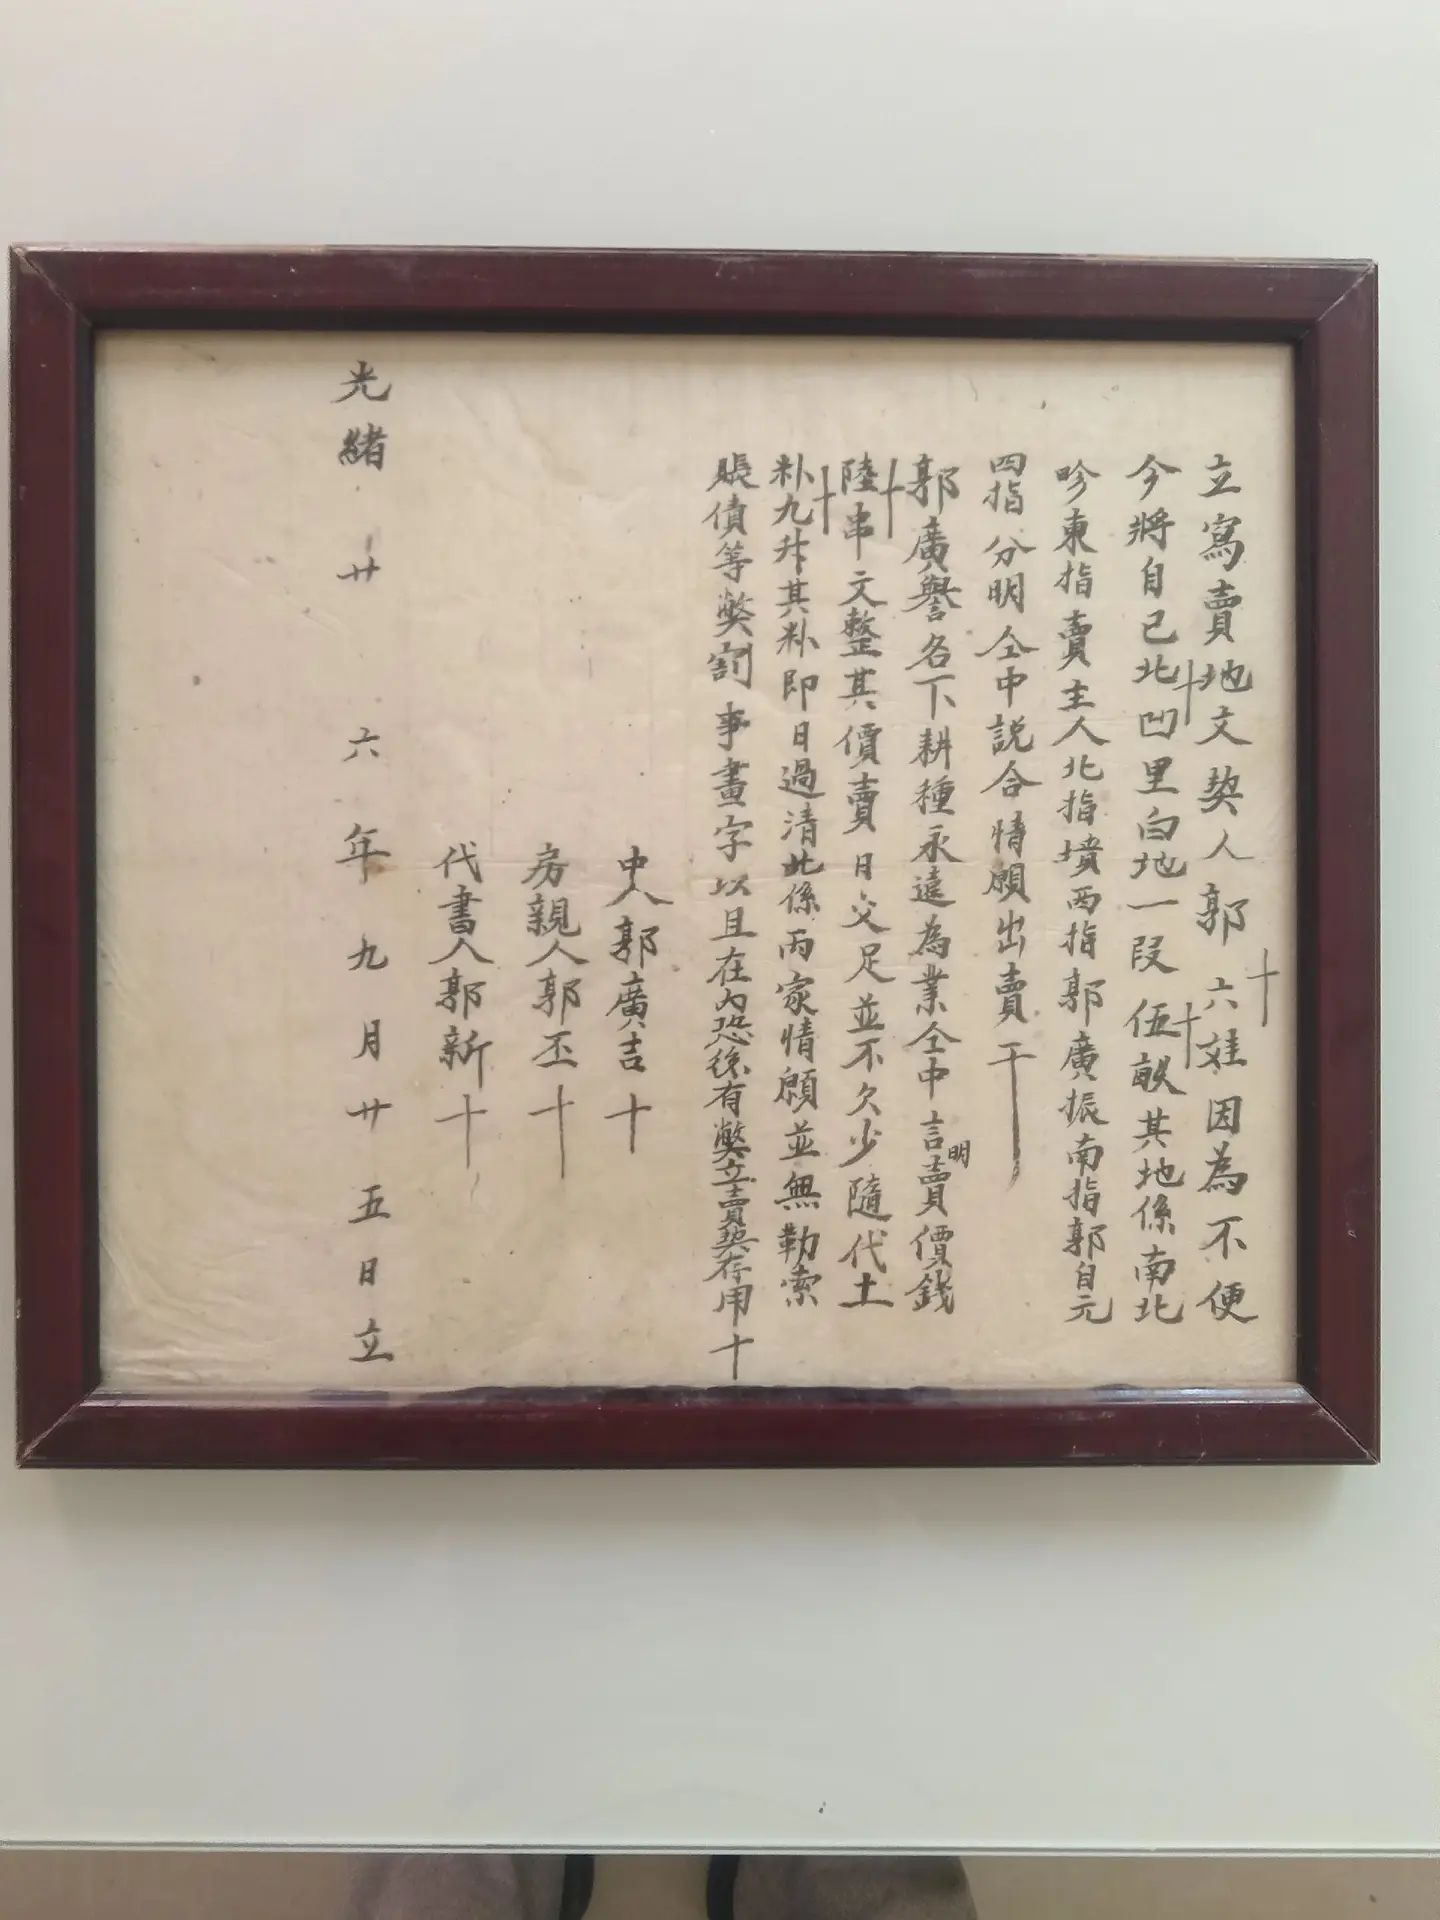 立寫賣地文契人郭六娃因為不便
今將自己北凹里白地一段伍畝其地係南北
畛東指賣主人北指墳西指郭廣振南指郭自元
四指分明仝中說合情願出賣干
郭廣譽名下耕種永遠為業仝中言明賣價錢
陸串文整其價賣日交足並不欠少隨代土
粆九升其粆即日過清此係両家情願並無勒索
賬債等獘割事畫字以且在內恐後有獘立賣契存用十
中人郭廣吉十
房親人郭丕十
代書人郭新十
光緒廿六年九月廿五日立